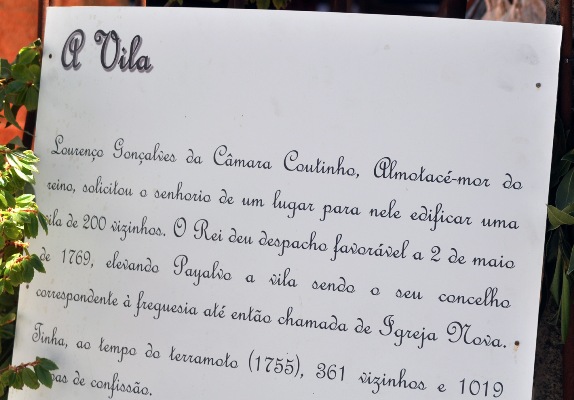 A Vila
Lourenço Gonçalves da Câmara Coutinho, Almotacé-mor do
reino, solicitou o senhorio de um lugar para nele edificar uma
vila de 200 vizinhos. O Rei deu despacho favorável a 2 de maio
de 1769, elevando Payalvo a vila sendo o seu concelho
correspondente à freguesia até então chamada de Igreja Nova.
Tinha, ao tempo do terramoto (1755), 361 vizinhos e 1019
de confissão.